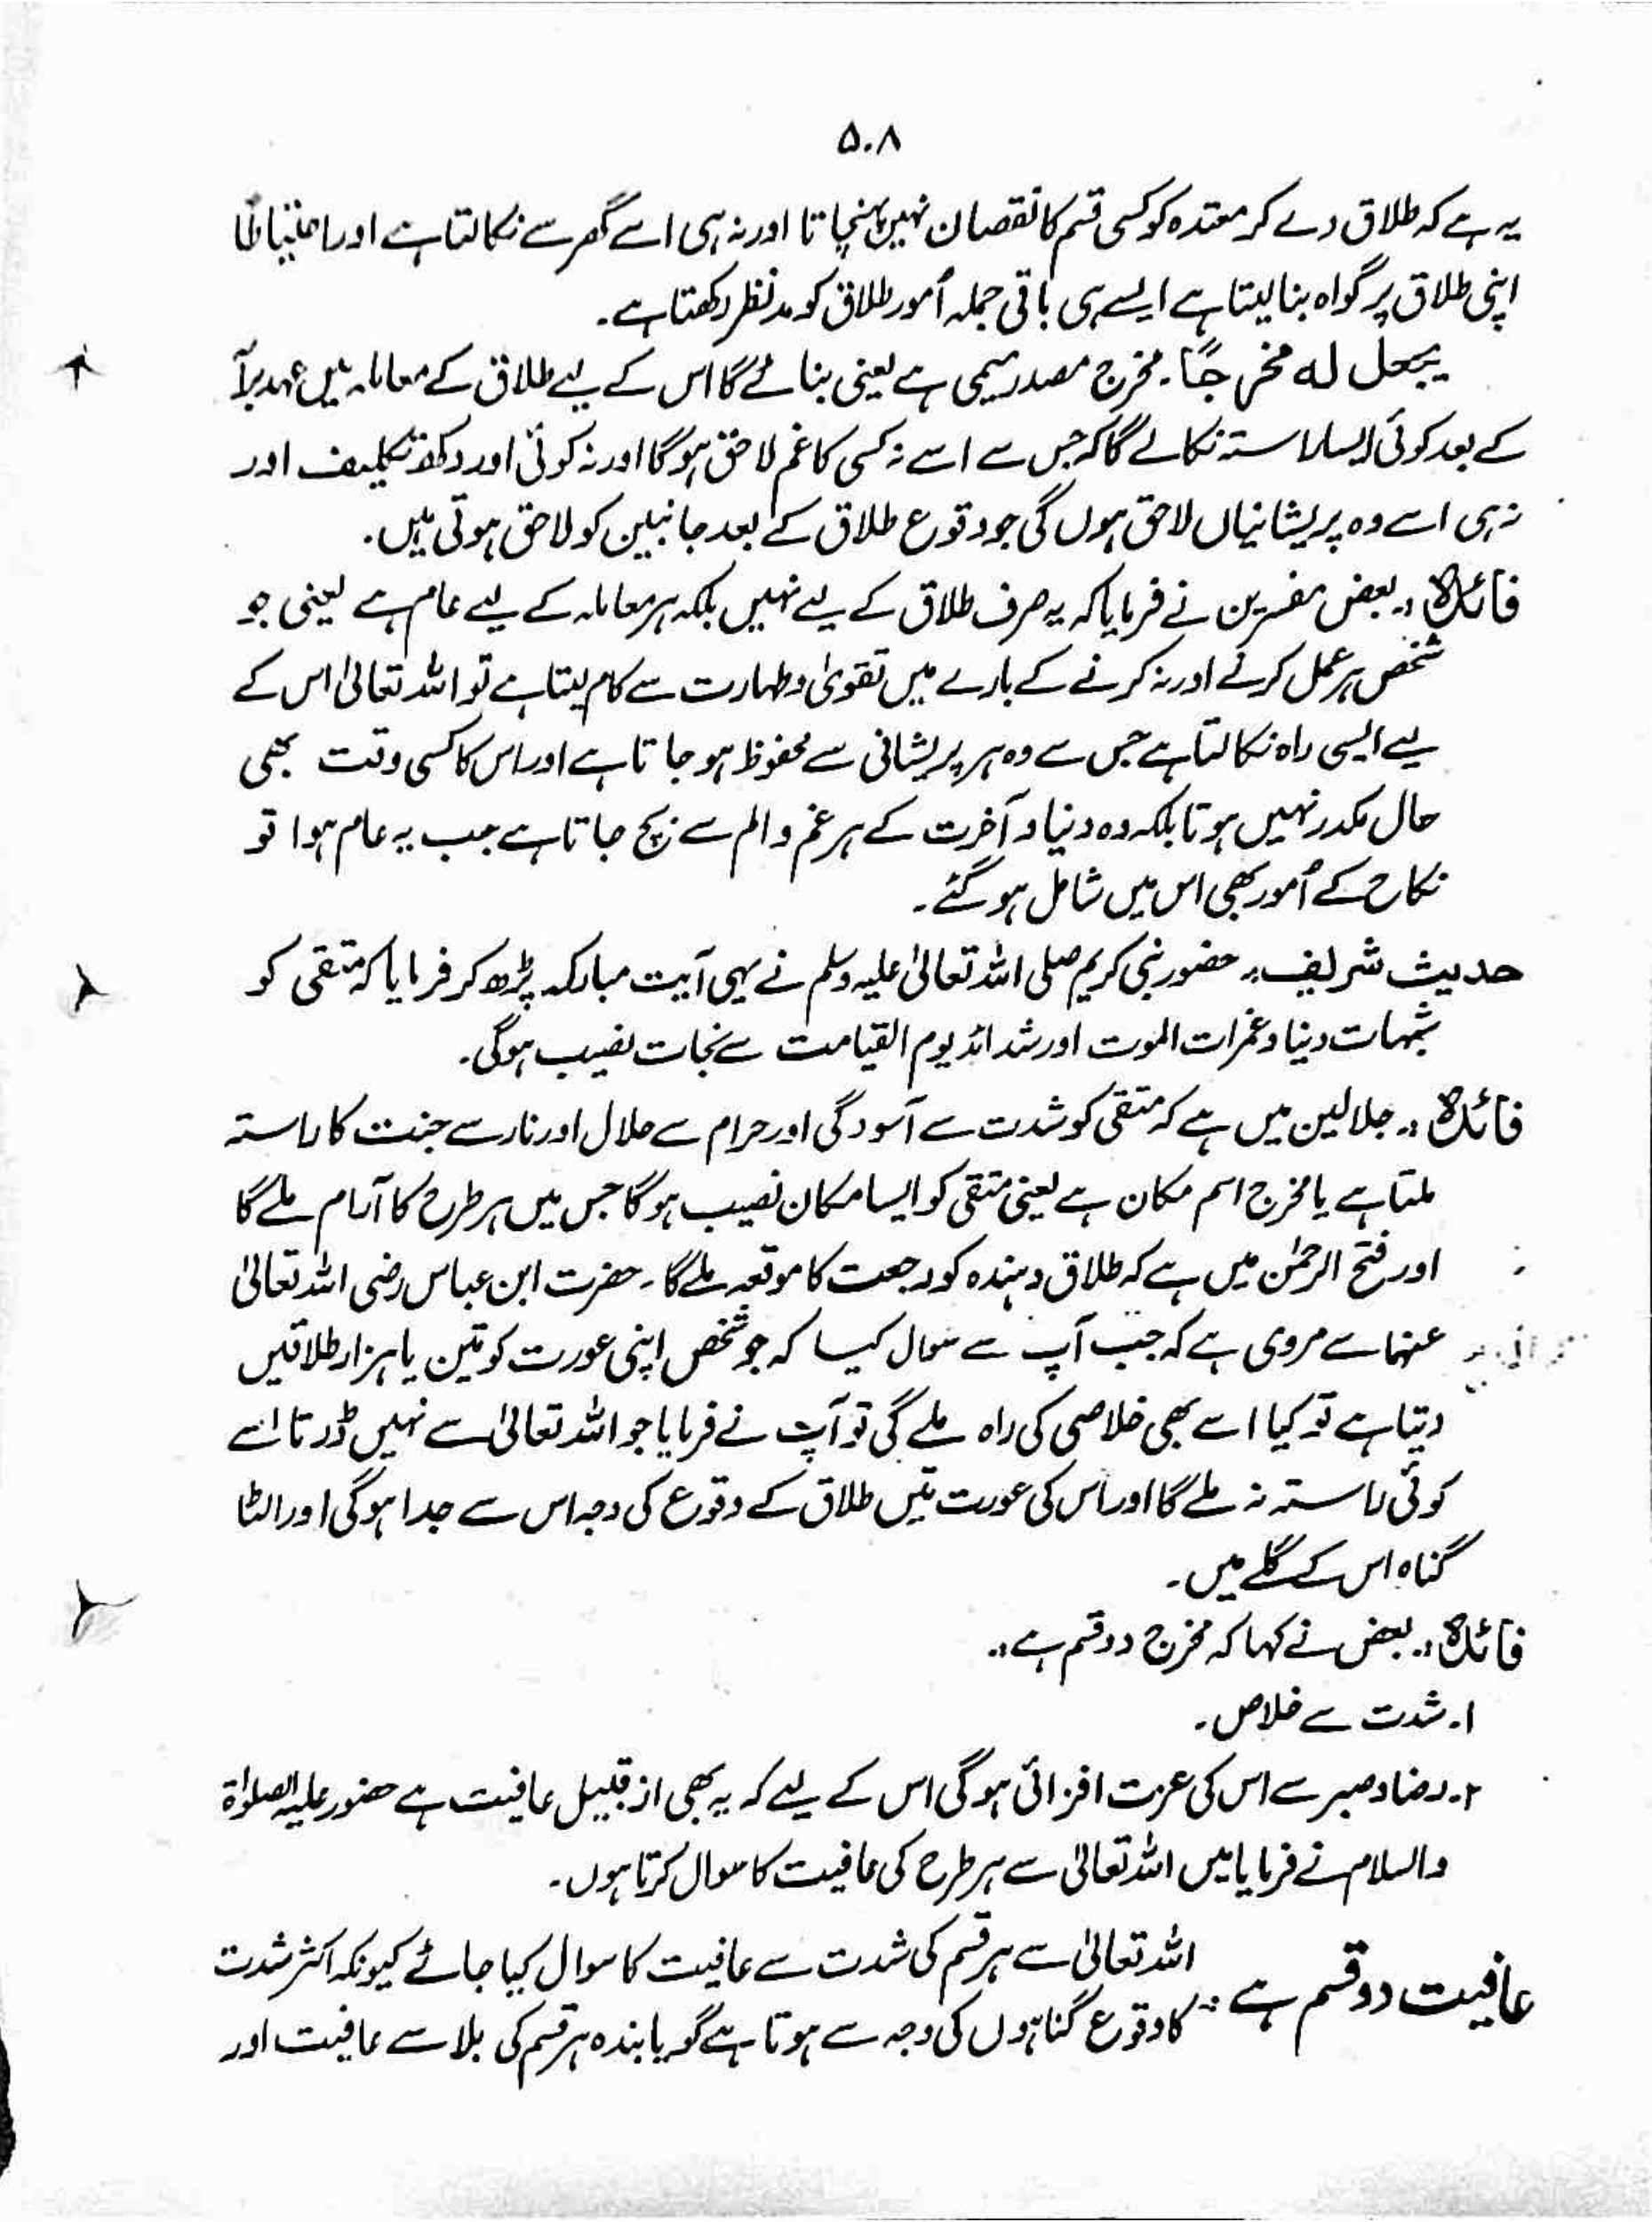 ۵۰۸
یہ ہے کہ طلاق دے کر معتدہ کو کسی قسم کا نقصان نہیں پہنچاتا اور نہ ہی اسے گھر سے نکالتا ہے اور احتیاطاً
اپنی طلاق پر گواہ بنا لیتا ہے ایسے ہی باقی جملہ اُمور طلاق کو مدنظر رکھتا ہے۔
یجعل لہ مخرجًا۔ مخرج مصدر میمی ہے یعنی بنائے گا اس کے لیے طلاق کے معاملہ میں عہد برآ
کے بعد کوئی ایسا راستہ نکالے گا کہ جس سے اسے نہ کسی کا غم لاحق ہو گا اور نہ کوئی اور دکھ تکلیف اور
نہ ہی اسے وہ پریشانیاں لاحق ہوں گی جو وقوع طلاق کے بعد جانبین کو لاحق ہوتی ہیں۔
فائدہ:۔ بعض مفسرین نے فرمایا کہ یہ صرف طلاق کے لیے نہیں بلکہ ہر معاملہ کے لیے عام ہے یعنی جو
شخص ہر عمل کرنے اور نہ کرنے کے بارے میں تقویٰ و طہارت سے کام لیتا ہے تو اللہ تعالیٰ اس کے
لیے ایسی راہ نکالتا ہے جس سے وہ ہر پریشانی سے محفوظ ہو جاتا ہے اور اس کا کسی وقت بھی
حال مکدر نہیں ہوتا بلکہ وہ دنیا و آخرت کے ہر غم و الم سے بچ جاتا ہے جب یہ عام ہوا تو
نکاح کے اُمور بھی اس میں شامل ہو گئے۔
حدیث شریف:۔ حضور نبی کریم صلی اللہ تعالیٰ علیہ وسلم نے یہی آیت مبارکہ پڑھ کر فرمایا کہ متقی کو
شبہات دنیا و غمرات الموت اور شدائد یوم القیامت سے نجات نصیب ہو گی۔
فائدہ:۔ جلالین میں ہے کہ متقی کو شدت سے آسودگی اور حرام سے حلال اور نار سے جنت کا راستہ
ملتا ہے یا مخرج اسم مکان ہے یعنی متقی کو ایسا مکان نصیب ہو گا جس میں ہر طرح کا آرام ملے گا
اور فتح الرحمٰن میں ہے کہ طلاق دہندہ کو رجعت کا موقعہ ملے گا۔ حضرت ابن عباس رضی اللہ تعالیٰ
عنہما سے مروی ہے کہ جب آپ سے سوال کیا کہ جو شخص اپنی عورت کو تین یا ہزار طلاقیں
دیتا ہے تو کیا اسے بھی خلاصی کی راہ ملے گی تو آپ نے فرمایا جو اللہ تعالیٰ سے نہیں ڈرتا اسے
کوئی راستہ نہ ملے گا اور اس کی عورت تین طلاق کے وقوع کی وجہ اس سے جدا ہو گی اور الٹا
گناہ اس کے گلے میں۔
فائدہ:۔ بعض نے کہا کہ مخرج دو قسم ہے:۔
۱۔ شدت سے خلاص۔
۲۔ رضا و صبر سے اس کی عزت افزائی ہو گی اس کے لیے کہ یہ بھی از قبیل عافیت ہے حضور علیہ الصلوٰۃ
والسلام نے فرمایا میں اللہ تعالیٰ سے ہر طرح کی عافیت کا سوال کرتا ہوں۔
عافیت دو قسم ہے: اللہ تعالیٰ سے ہر قسم کی شدت سے عافیت کا سوال کیا جائے کیونکہ اکثر شدت
کا وقوع گناہوں کی وجہ سے ہوتا ہے گویا بندہ ہر قسم کی بلا سے عافیت اور